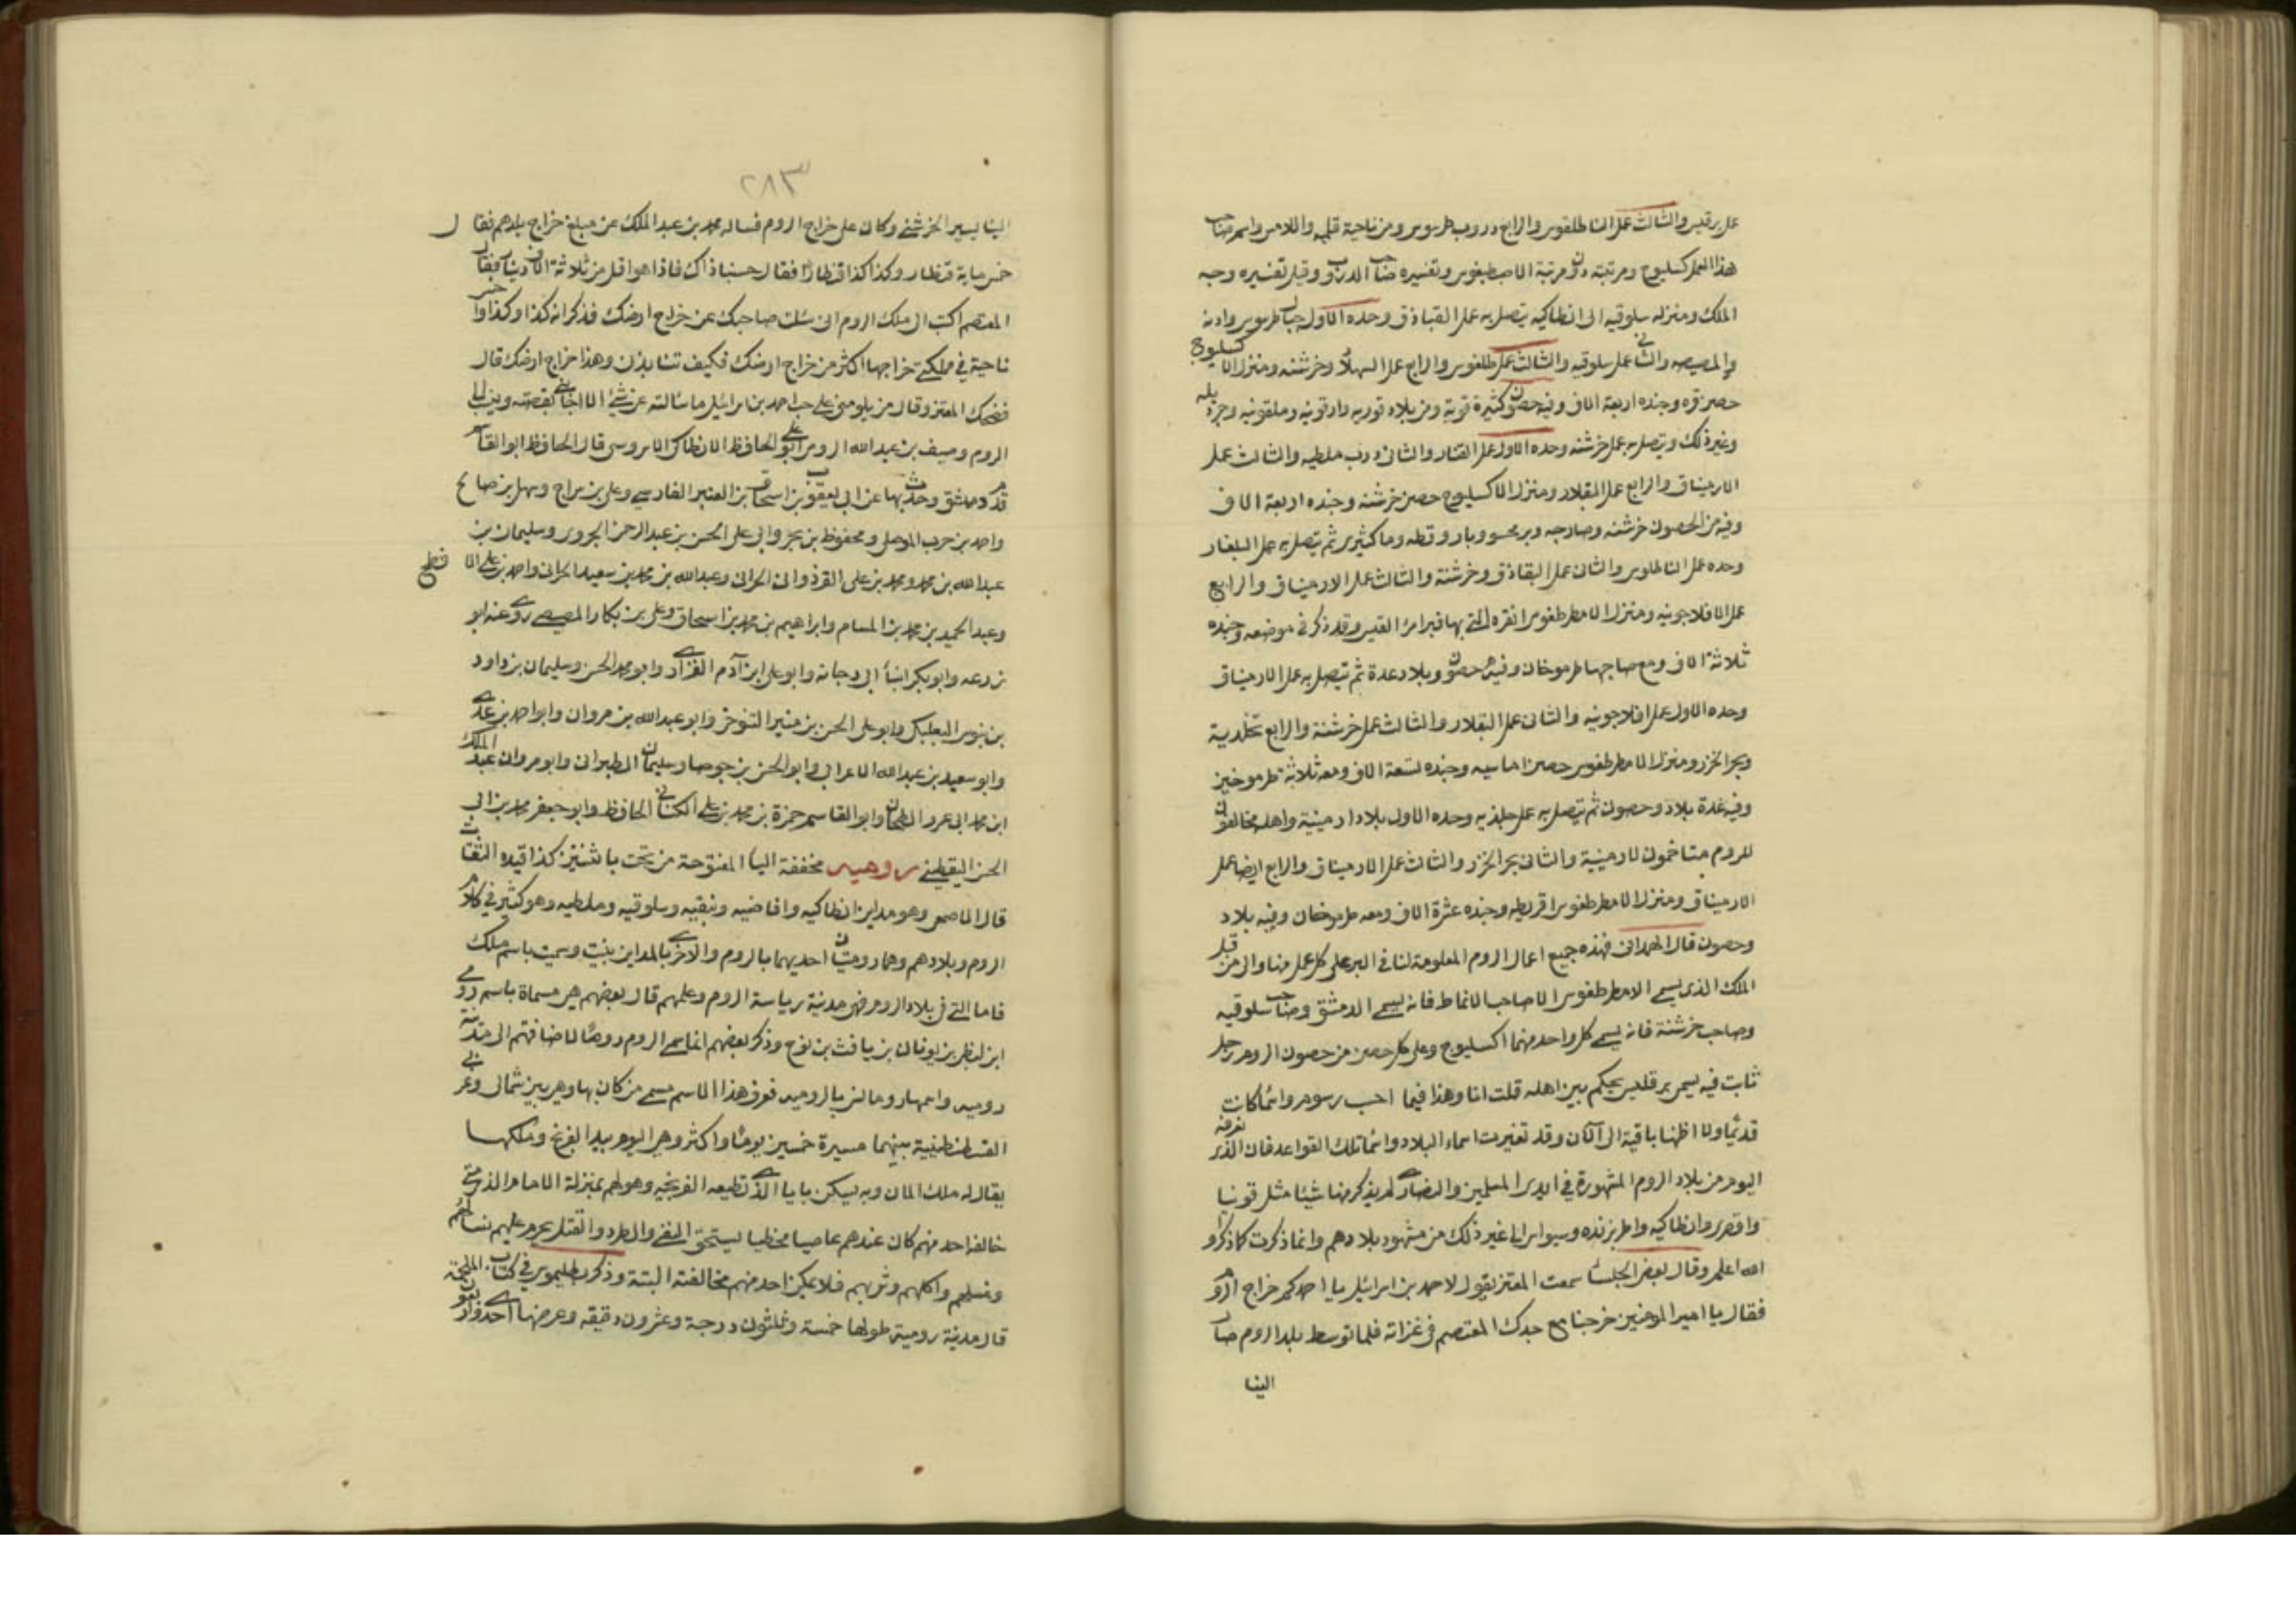 عمل برقليس والثالث عمل الناطلقوس والرابع دروب طرسوس ومن ناحية قلميه واللامس واسم صاحب
هذا العمل كسليوج ومرتبته دون مرتبة الاصطبغوس وتفسيره صاحب الدروب وقيل تفسيره وجه
الملك ومنزله سلوقيه الى انطاكيه يتصل به عمل القباذق وحده الاول جبال طرسوس وادنه
والمصيصه والثاني عمل سلوقيه والثالث عمل طلغوس والرابع عمل السهلار وخرشنه ومنزل الاكسليوج
حصن قره وجنده اربعة الاف وفيه حصون كثيرة قوية ومن بلاد قوريه دارقونيه وملقونيه وجرديله
وغير ذلك ويتصل به عمل خرشنه وحده الاول عمل القبار والثاني درب ملطيه والثالث عمل
الارمنياق والرابع عمل البقلار ومنزل الاكسليوج حصن خرشنه وجنده اربعة الاف
وفيه من الحصون خرشنه وصارجه وبرمحسو وباروقطه وماكثيرى ثم يتصل به عمل البلغار
وحده عمل الناطلوس والثاني عمل البقاذق وخرشنة والثالث عمل الارمنياق والرابع
عمل الافلاجونيه ومنزل الامطرطغوس انقره التي بها قبر امرا القيس وقد ذكر في موضعه وجنده
ثلاثة الاف ومع صاحبها طرموخان وفيه حصون وبلاد عدة ثم يتصل به عمل الارمنياق
وحده الاول عمل افلاجونيه والثاني عمل البقلار والثالث عمل خرشنة والرابع تخلدية
وبحر الخزر ومنزل الامطرطغوس حصن اماسيه وجنده تسعة الاف ومعه ثلاثة طرموخين
وفيه عدة بلاد وحصون ثم يتصل به عمل جلذيه وحده الاول بلاد ارمينية واهله مخالفون
للروم متاخمون لارمينية والثاني بحر الخزر والثالث عمل الارمنياق والرابع ايضا عمل
الارمنياق ومنزل الامطرطغوس اقريطه وجنده عشرة الاف ومعه طرموخان وفيه بلاد
وحصون قال الهمداني فهذه جميع اعمال الروم المعلومة لنا في البر على كل عمل منها وال من قبل
الملك الذي يسمى الامطرطغوس الا صاحب الانماط فانه يسمى الدمشق وصاحب سلوقيه
وصاحب خرشنة فانه يسمى كل واحد منهما اكسليوج وعلى كل حصن من حصون الروم رجل
ثابت فيه يسمى برقليس يحكم بين اهله قلت انا وهذا فيما احب رسوم وانما كانت
قديمًا ولا اظنها باقية الى الآن وقد تغيرت اسماء البلاد وانما تلك القواعد فان الذي نعرفه
اليوم من بلاد الروم المشهورة في ايدي المسلمين والنصارى لم يذكر منها شيئا مثل قونيا
واقصرى وانطاكيه واطربزنده وسيواس الى غير ذلك من مشهور بلادهم وانما ذكرت كما ذكروا
الله اعلم وقال بعض الجلسا سمعت المعتز يقول لاحمد بن اسرائيل يا احمد كم خراج الروم
فقال يا امير المومنين خرجنا مع جدك المعتصم في غزاته فلما توسط بلد الروم صار
الينا
٢٨٣
الينا بسير الخرشني وكان على خراج الروم فساله محمد بن عبد الملك عن مبلغ خراج بلدهم فقال
خمس ماية قنطار وكذا كذا قنطارًا فقال حسبنا ذاك فاذا هو اقل من ثلاثة الاف دينار فقال
المعتصم اكتب الى ملك الروم اني سالت صاحبك عن خراج ارضك فذكر انه كذا وكذا واخس
ناحية في مملكتي خراجها اكثر من خراج ارضك فكيف تنابذن وهذا خراج ارضك قال
فضحك المعتز وقال من يلومني على حب احمد بن اسرائيل ما سالته عن شيء الا اجابني بقصته وينسب الى
الروم وصيف بن عبد الله الرومي ابو علي الحافظ الانطاكي الاسروسي قال الحافظ ابو القاسم
قدم دمشق وحدث بها عن ابي يعقوب بن اسحاق بن العنبر الفارسي وعلي بن سراج وسهل بن صالح
واحمد بن حرب الموصلي ومحفوظ بن بحر وابي علي الحسن بن عبد الرحمن الجروي وسليمان بن
عبد الله بن محمد ومحمد بن علي القرذواني الحراني وعبد الله بن محمد بن سعيد الحراني واحمد بن علي الافطح
وعبد الحميد بن محمد بن المسام وابراهيم بن محمد بن اسحاق وعلي بن بكار المصيصي روى عنه ابو
زرعه وابو بكر ابنا ابي دجانه وابو علي ابن آدم الفزاري وابو محمد الحسن وسليمان بن داود
بن بنوس البعلبكي وابو علي الحسن بن منير التنوخي وابو عبد الله بن مروان وابو احمد بن عدي
وابو سعيد بن عبد الله الاعرابي وابو الحسن بن جوصا وسليمان الطبراني وابو مروان عبد الملك
ابن محمد ابي عمر الطحان وابو القاسم حمزة بن محمد بن علي الكناني الحافظ وابو جعفر محمد بن ابي
الحسن اليقطيني روميه مخففة اليا المفتوحة من تحت باثنتين كذا قيده الثقات
قال الاصمعي وهو مداين انطاكيه وافاضيه ونيقيه وسلوقيه وملطيه وهو كثير في كلام
الروم وبلادهم وهما روميتان احديهما بالروم والاخرى بالمداين بنيت وسميت باسم ملك
فاما التي في بلاد الروم فهي مدينة رياسة الروم وعلمهم قال بعضهم هي مسماة باسم رومي
ابن لنطي بن يونان بن يافث بن نوح وذكر بعضهم انما سمي الروم رومًا لاضافتهم الى مدينة
روميه واسمها رومانس بالروميه فعرف هذا الاسم فسمي من كان بها وهي بين شمالي وغربي
القسطنطينية بينهما مسيرة خمسين يومًا واكثر وهي اليوم بيد الفرنج وملكها
يقال له ملك المان وبه يسكن بابا الذي تطيعه الفرنجيه وهو لهم بمنزلة الامام الذي متى
خالفه احد منهم كان عندهم عاصيا مخطيا يستحق النفي والطرد والقتل يحرم عليهم نسائهم
وغسلهم واكلهم وشربهم فلا يمكن احد منهم مخالفته البتة وذكر بطليموس في كتاب الملحمة
قال مدينة رومية طولها خمسة وثلثون درجة وعشرون دقيقه وعرضها احدى واربعون